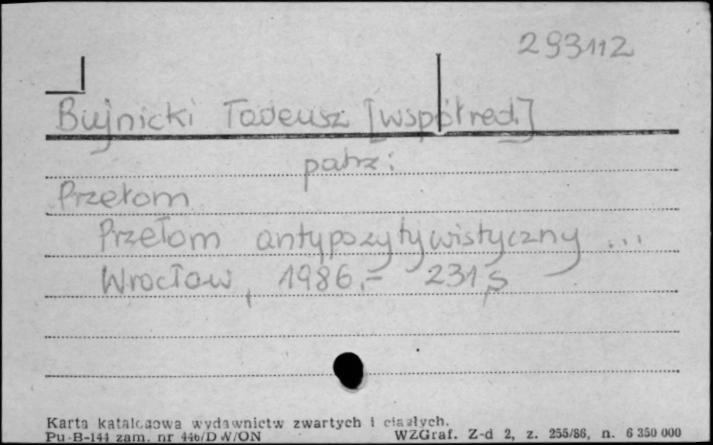 293112
Bujnicki Tadeusz [współred.]
patrz:
Przełom
Przełom antypozytywistyczny ...
Wrocław, 1986.- 231, s
Karta katalogowa wydawnictw zwartych i ciągłych.
Pu-B-144 zam. nr 446/DW/ON WZGraf. Z-d 2, z. 255/86, n. 6 350 000